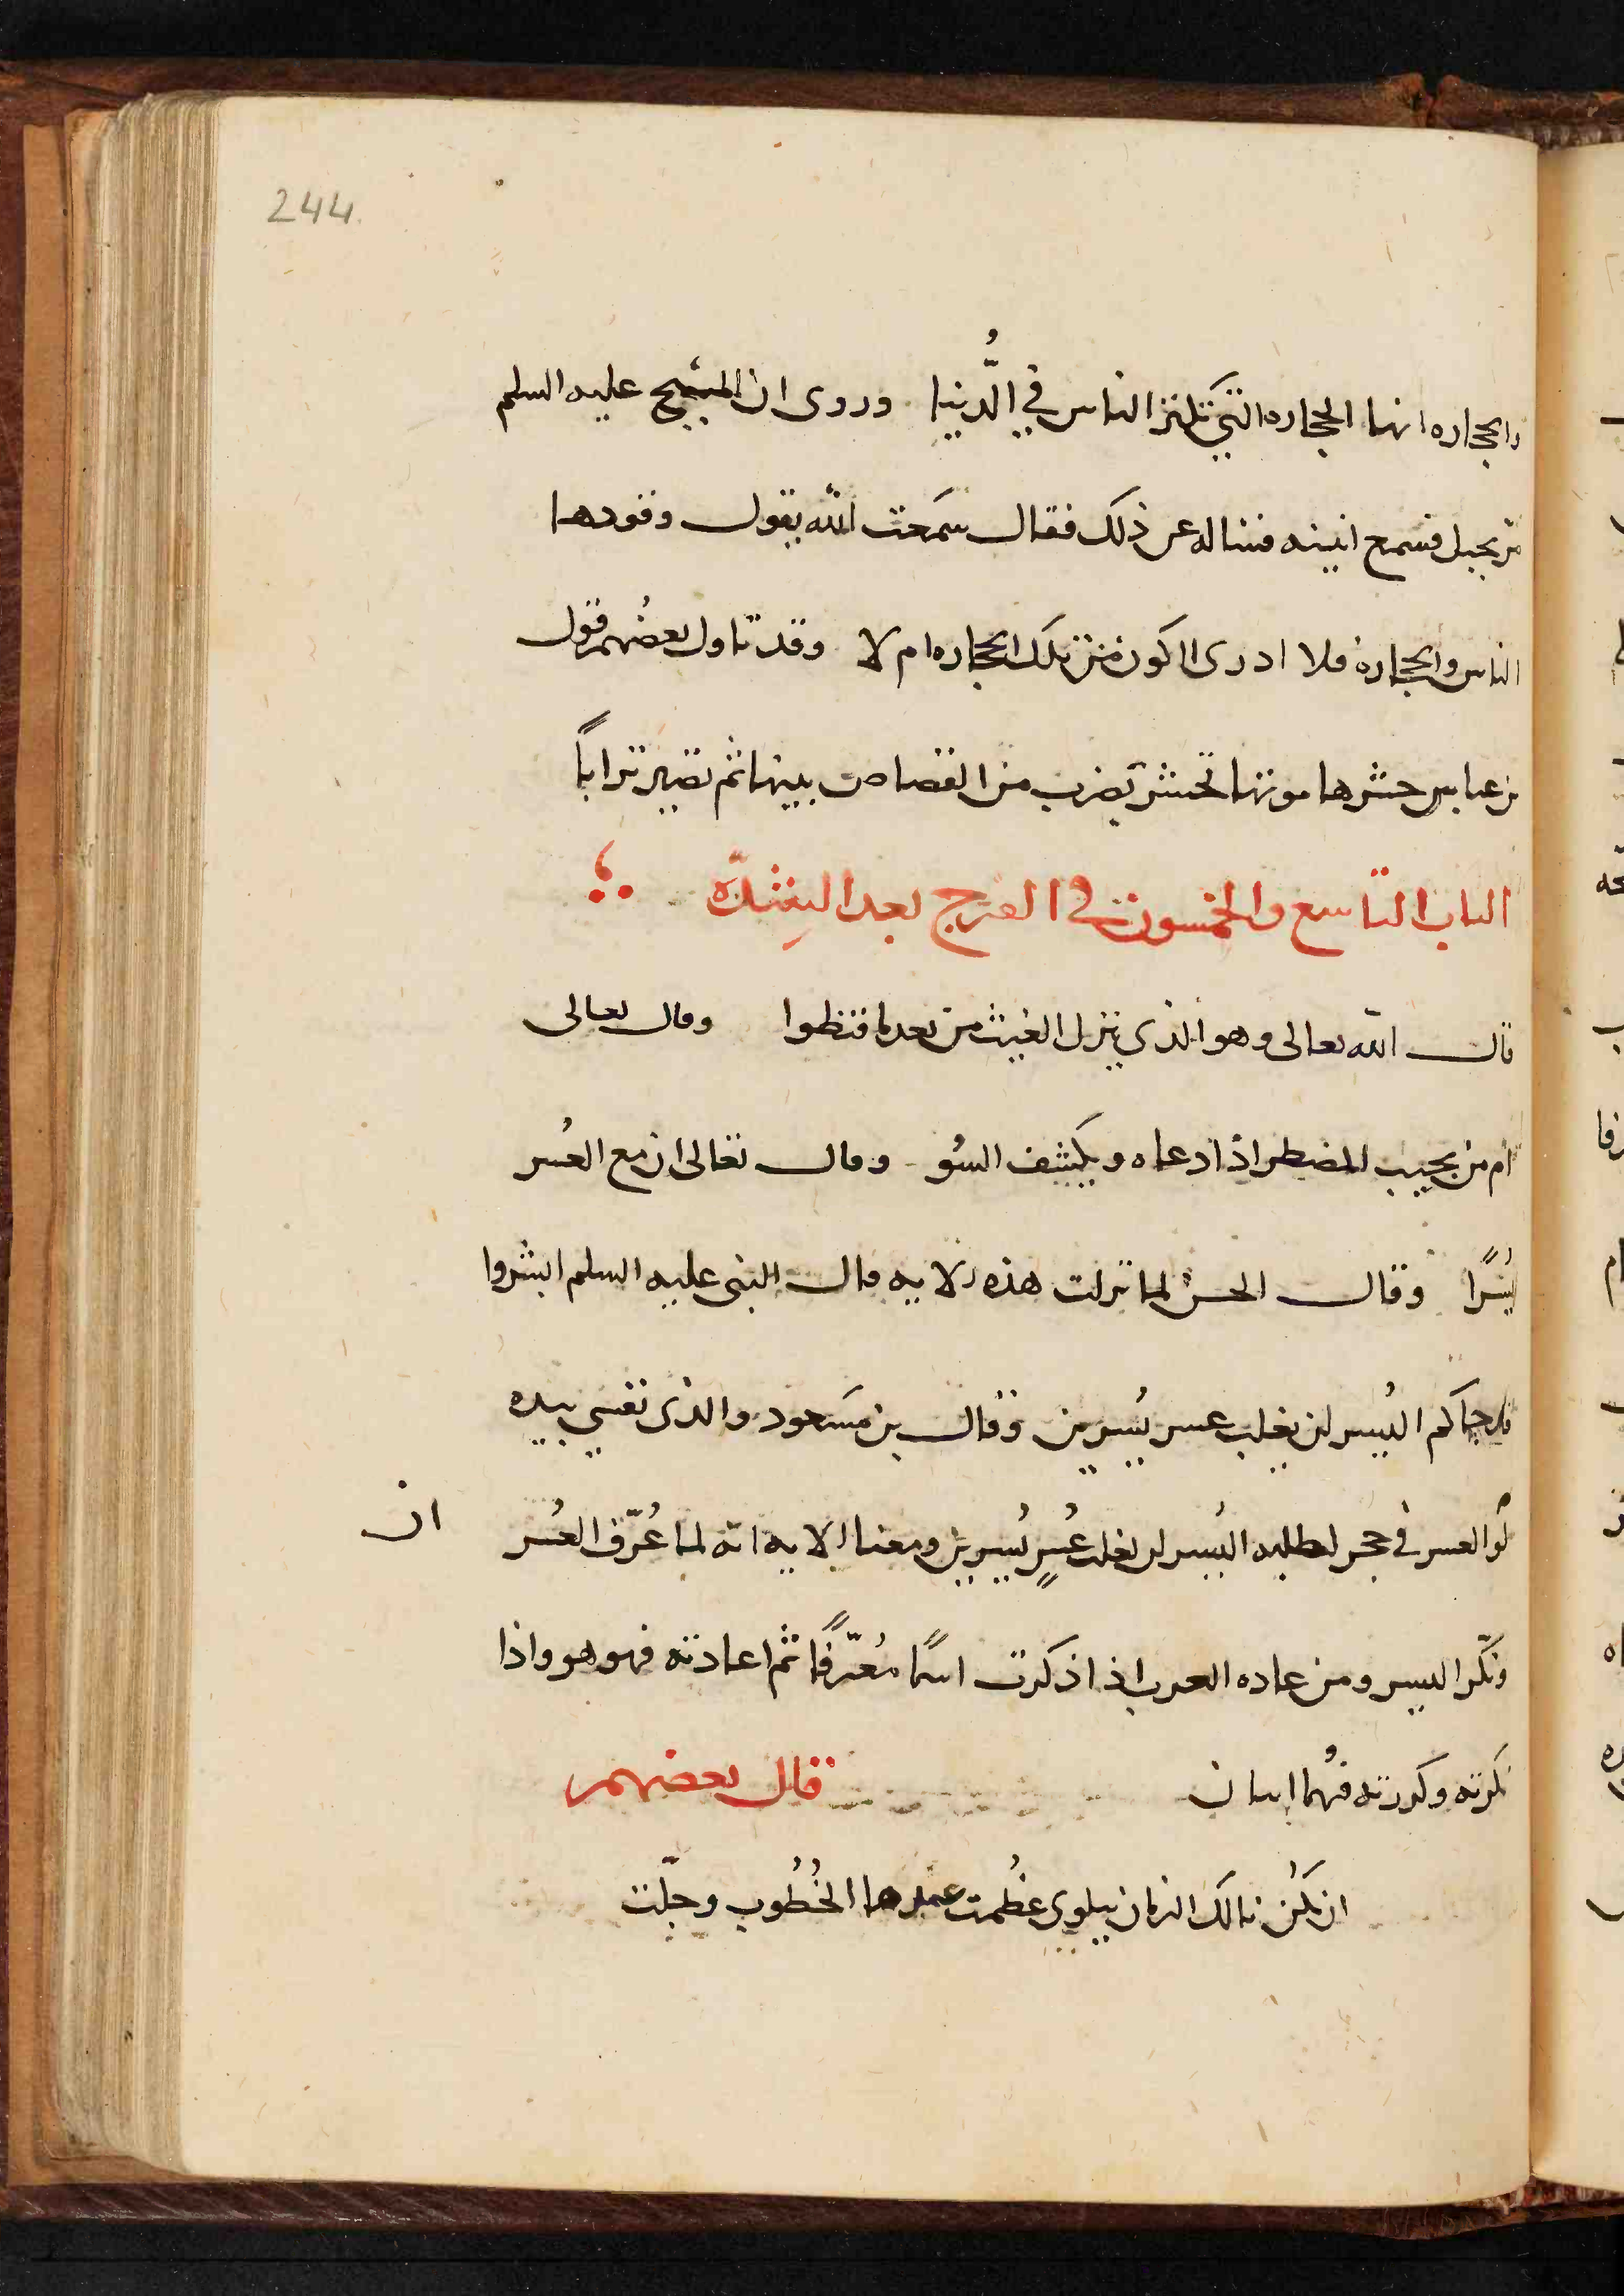 244
والحجاره انها الحجاره التي تكنز الناس في الدُّنيا وروى ان المسيح عليه السلم
مر بجبل فسمع انينه فساله عن ذلك فقال سمَعت الله يقول وقودها
الناس والحجارة فلا ادرى اكون من تلك الحجاره ام لا وقد تاول بعضُهم قول
بن عباس حشرها موتها تحشر بضرب من القصاص بينها ثم تصير تراباً
الباب التاسع والخمسون في الفرج بعد الشِدّه
قال الله تعالى وهو الذى ينزل الغيث من بعد ما قنطوا وقال تعالى
ام من يجيب المضطر اذا دعاه ويكَشف السُو وقال تعالى ان مع العُسر
يُسرًا وقال الحسن لما نزلت هذه الايه قال النبى عليه السلم ابشروا
قد جاكم اليُسر لن يغلب عسر يُسرين وقال بن مسَعود والذى نفسي بيده
لو العسر في حجر لطلبه اليُسر لن يغلب عُسرٍ يُسرين ومعنا الايه انه لما عُرّف العُسر
ان
ونكّر اليسر ومن عاده العرب اذا ذكرت اسمًا مُعرّفًا ثم اعادته فهو هو واذا
نكرته وكررته فهُما اسان
قال بعضهم
ان تكُن نالك الزمان ببلوى عظُمت عندها الخُطُوب وجلّت